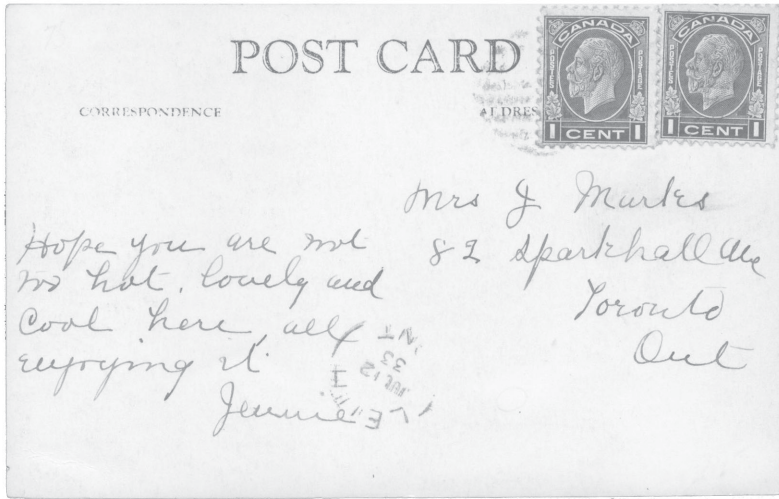 POST CARD
CORRESPONDENCE
ADDRES
CANADA
POSTES POSTAGE
1 CENT 1
CANADA
POSTES POSTAGE
1 CENT 1
Hope you are not
too hot. lovely and
cool here, all
enjoying it.
Jennie
Mrs J Marks
82 Sparkhall Ave
Toronto
Ont
12
33
ONT